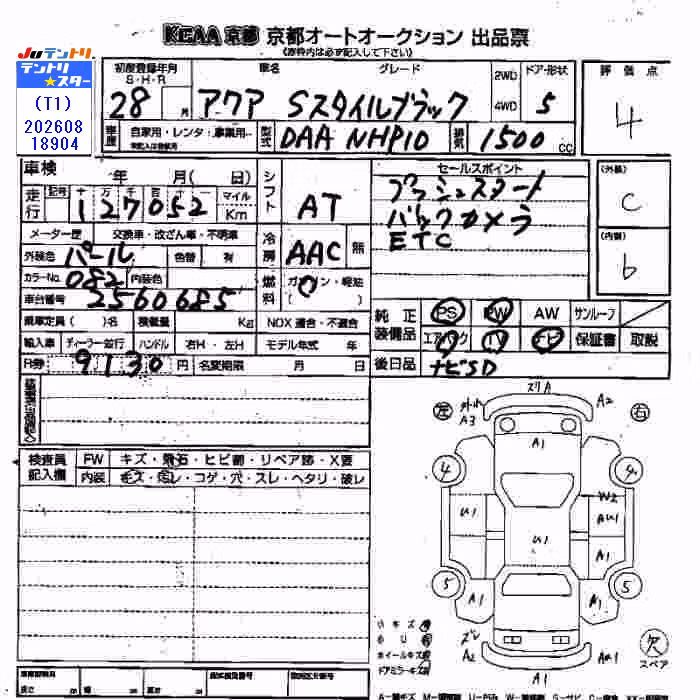 KCAA 京都 京都オートオークション 出品票
(赤枠内は必ず記入して下さい)
JUテントリ
テントリスター
(T1)
202608
18904
初度登録年月 車名 グレード ドア・形状 評価点
S・H・R 2WD
28 月 アクア Sスタイルブラック 4WD 5 4
車歴 自家用・レンタ・事業用・ 型式 DAA NHP10 排気 1500 CC
車検 年 月(日) シフト AT セールスポイント (外装)
走行 記号 十 万 千 百 十 一 マイル プッシュスタート C
127052 Km バックカメラ
メーター歴 交換車・改ざん車・不明車 冷房 AAC 無 ETC (内装)
外装色 パール 色替 有 b
カラーNo. 082 内装色 燃料 ガソリン・軽油
車台番号 2560685 ( )
乗車定員( )名 積載量 Kg NOX適合・不適合 純正装備品 PS PW AW サンルーフ
輸入車 ディーラー・並行 ハンドル 右H・左H モデル年式 年 エアバック TV ナビ 保証書 取説
R券 9130 円 名変期限 月 日 後日品 ナビSD
左 右
ズリA
外れ A2
A3
A1
4 4
W2
U1 AU1
U1
A1
5 5
A1 A1
ズレ
A2 AU1
A1
欠
スペア
検査員記入欄 FW キズ・飛石・ヒビ割・リペア跡・X要
内装 キズ・汚レ・コゲ・穴・スレ・ヘタリ・破レ
小キズ
小U
ホイールキズ
ドアミラーキズ
長さ cm 幅 cm 高さ cm